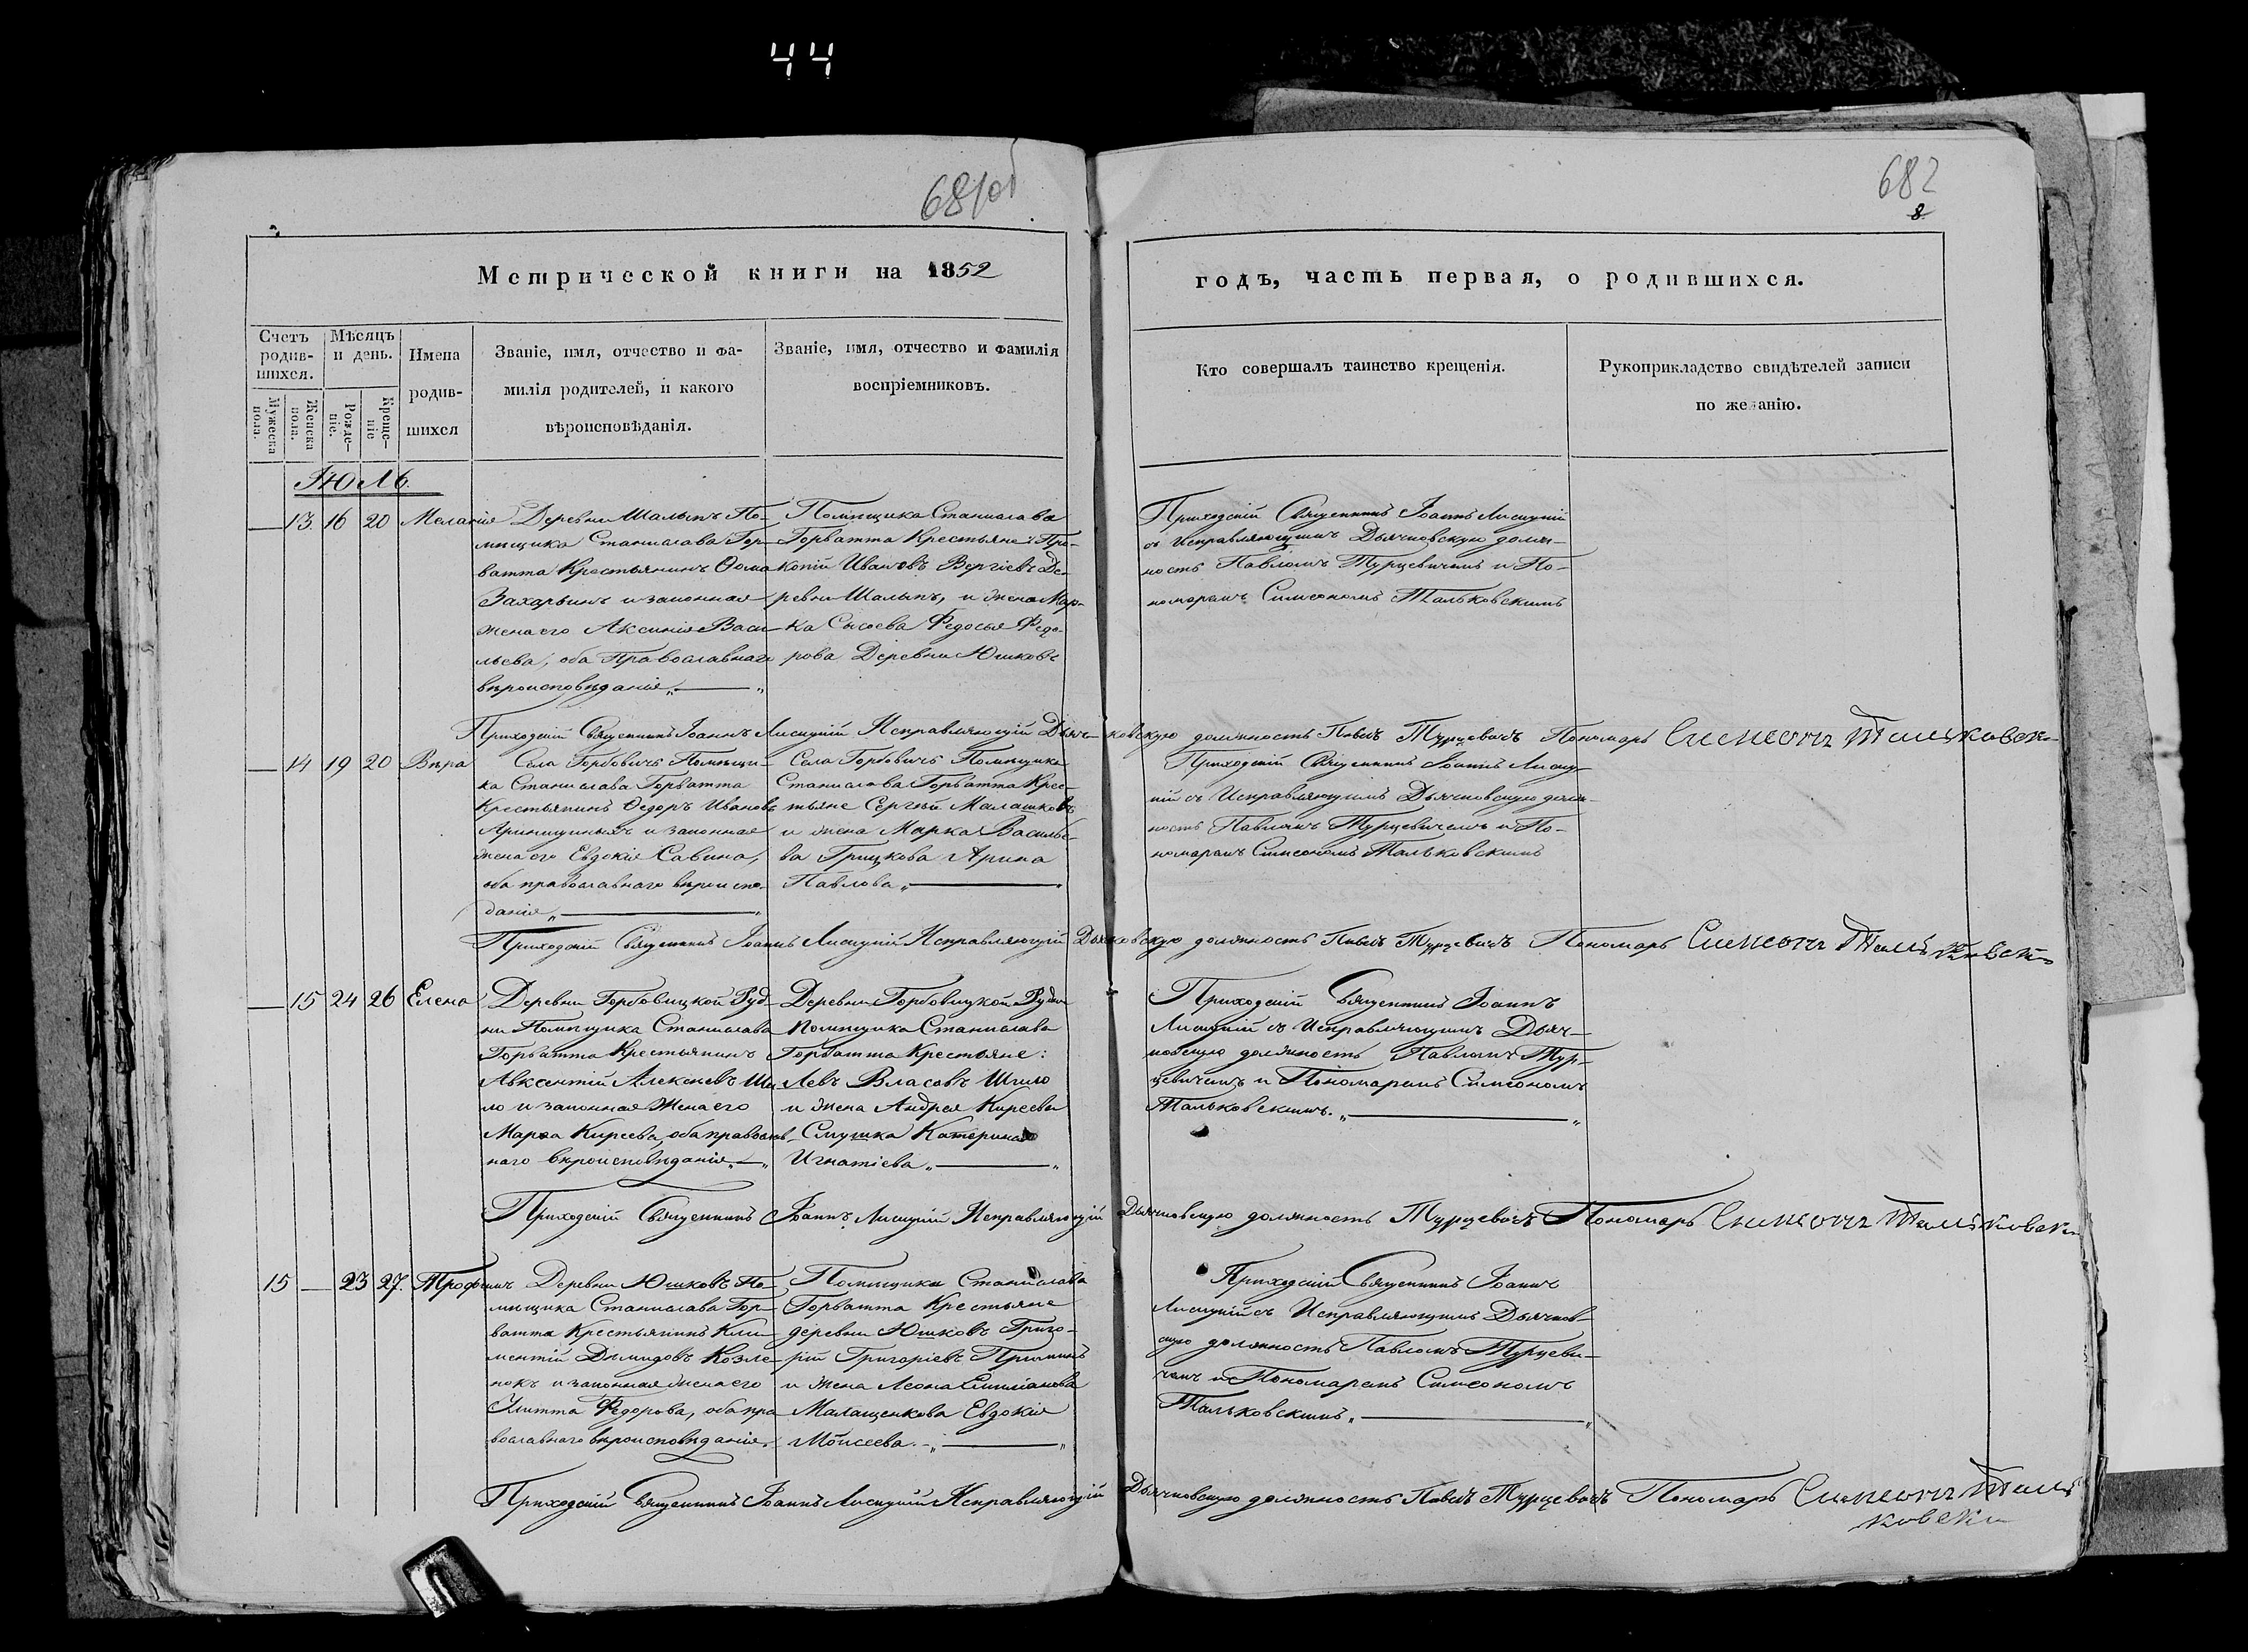 44
681об
682
8
Метрической книги на 1852
годъ, часть первая, о родившихся.
Счетъ родив-шихся.
Мѣсяцъ и день.
Имена родив-шихся
Званіе, имя, отчество и фа-
милія родителей, и какого
вѣроисповѣданія.
Званіе, имя, отчество и фамилія
воспріемниковъ.
Кто совершалъ таинство крещенія.
Рукоприкладство свидѣтелей записи
по желанію.
Мужеска пола.
Женска пола.
Рожде-ніе.
Креще-ніе
Іюль
13. 16 20 Меланія
Деревни Шалыпъ По-
мѣщика Станислава Гор-
ватта Крестьянинъ Ѳома
Захарьинъ и законная
жена его Аксинія Васи-
льева, оба Православнаго
вѣроисповѣданія
Помѣщика Станислава
Горватта Крестьяне: Про-
копій Ивановъ Вергіевъ Де-
ревни Шалыпъ, и жена Мар-
ка Сысоева Федосья Федо-
рова Деревни Юшковъ
Приходскій Священникъ Іоаннъ Лисицкій
съ Исправляющимъ Дьячковскую долж-
ность Павломъ Турцевичемъ и По-
номаремъ Симеономъ Тальковскимъ
Приходскій Священникъ Іоаннъ Лисицкій Исправляющій Дьячковскую должность Павелъ Турцевичъ Пономарь Симеонъ Тальковски
14 19 20 Вѣра
Села Горбовичъ Помѣщи-
ка Станислава Горватта
Крестьянинъ Ѳедоръ Ивановъ
и законная
жена его Евдокія Савина,
оба православнаго вѣроиспо-
данія
Села Горбовичъ Помѣщика
Станислава Горватта Крес-
тьяне Сергѣй Малашковъ
и жена Марка Василье-
ва Грицкова Арина
Павлова
Приходскій Священникъ Іоаннъ Лисиц-
кій съ Исправляющимъ Дьячковскую долж-
ность Павломъ Турцевичемъ и По-
номаремъ Симеономъ Тальковскимъ
Приходскій Священникъ Іоаннъ Лисицкій Исправляющій Дьячковскую должность Павелъ Турцевичъ Пономарь Симеонъ Тальковски
15 24 26 Елена
Деревни Горбовицкой Руд-
ни Помѣщика Станислава
Горватта Крестьянинъ
Авксентій Алексѣевъ Ши
ло и законная Жена его
Марѳа Кирѣева, оба православ-
наго вѣроисповѣданія
Деревни Горбовицкой Рудни
Помѣщика Станислава
Горватта Крестьяне:
Левъ Власовъ Шило
и жена Андрея Кирѣева
Смушка Катерина
Игнатіева
Приходскій Священникъ Іоаннъ
Лисицкій съ Исправляющимъ Дьяч-
ковскую должность Павломъ Тур-
цевичемъ и Пономаремъ Симеономъ
Тальковскимъ.
Приходскій Священникъ Іоаннъ Лисицкій Исправляющій Дьячковскую должность Турцевичъ Пономарь Симеонъ Тальковски
15 23 27. Трофимъ
Деревни Юшковъ По-
мѣщика Станислава Гор-
ватта Крестьянинъ Кли-
ментій Дымидовъ Козле-
нокъ и законная жена его
Федорова, оба пра
вославнаго вѣроисповѣданія.
Помѣщика Станислава
Горватта Крестьяне
деревни Юшковъ Григо-
рій Григоріевъ
и жена Леона Емиліанова
Малащенкова Евдокія
Моисеева.
Приходскій Священникъ Іоаннъ
Лисицкій съ Исправляющимъ Дьячков-
скую должность Павломъ Турцеви-
чемъ и Пономаремъ Симеономъ
Тальковскимъ
Приходскій Священникъ Іоаннъ Лисицкій Исправляющій Дьячковскую должность Павелъ Турцевичъ Пономарь Симеонъ Таль
ковски